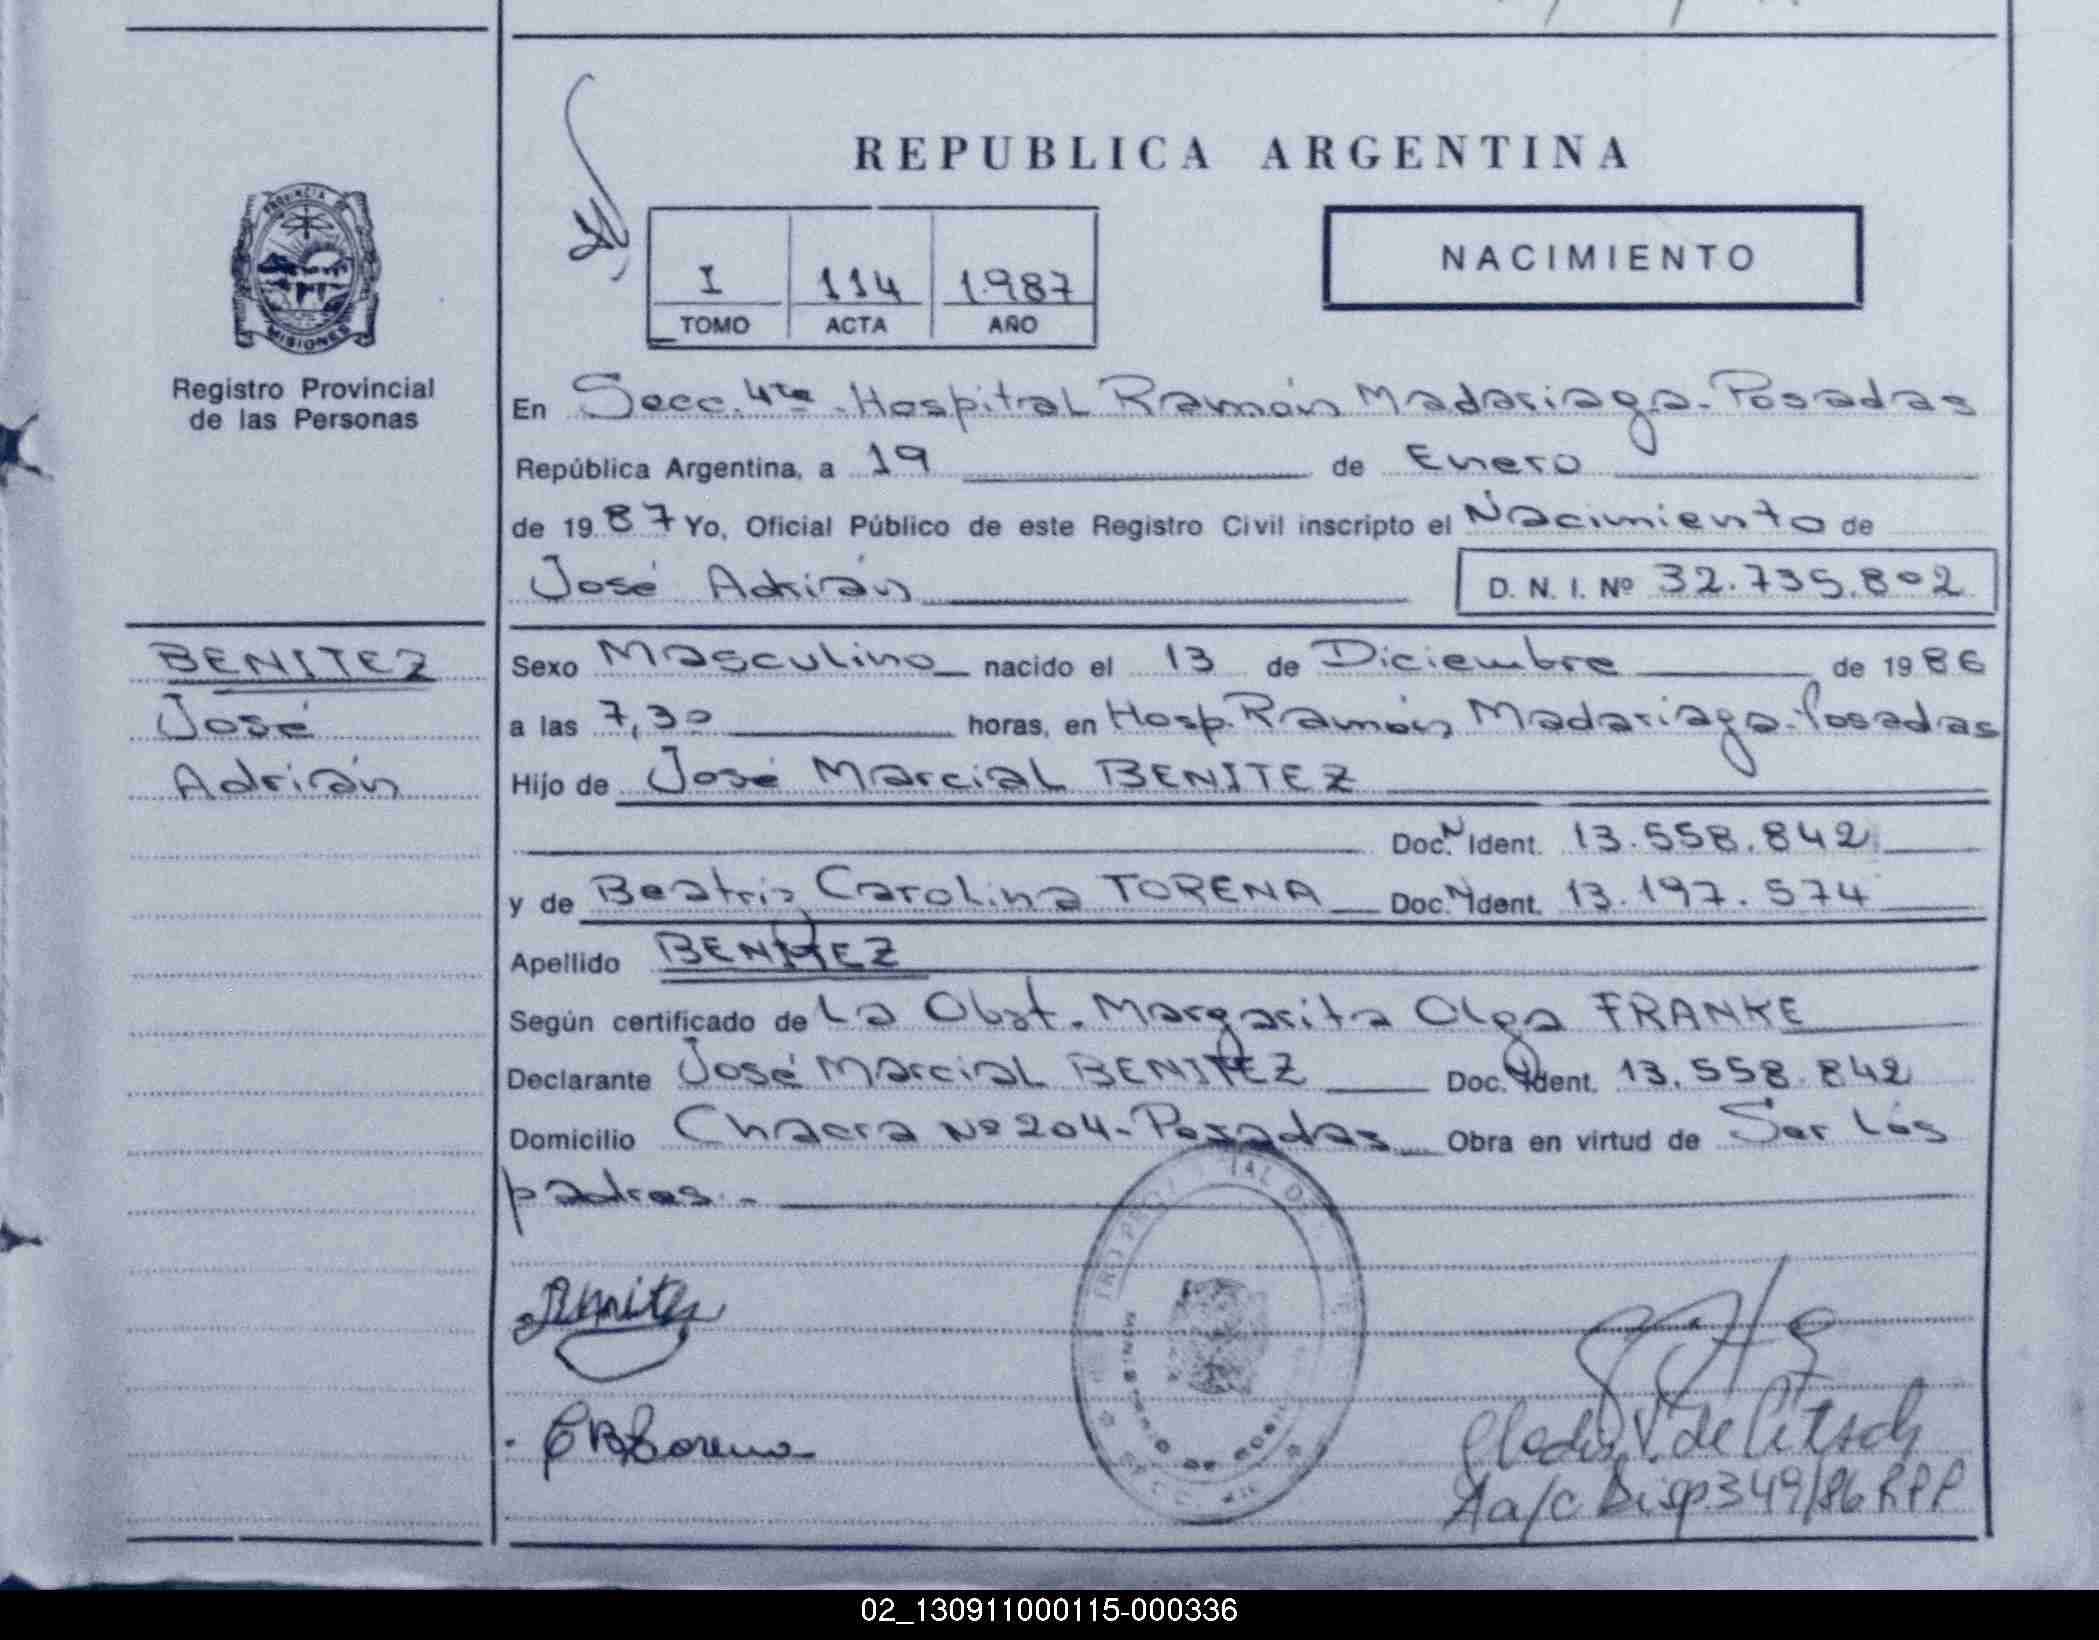 REPUBLICA ARGENTINA
PROVINCIA DE MISIONES
Registro Provincial
de las Personas
I 114 1.987
TOMO ACTA AÑO
NACIMIENTO
En Secc. 4ta. Hospital Ramón Madariaga. Posadas
República Argentina, a 19 de Enero
de 1987 Yo, Oficial Público de este Registro Civil inscripto el Nacimiento de
José Adrián D. N. I. Nº 32.735.802
BENITEZ
José
Adrián
Sexo Masculino nacido el 13 de Diciembre de 1986
a las 7,30 horas, en Hosp. Ramón Madariaga. Posadas
Hijo de José Marcial BENITEZ
Doc. N Ident. 13.558.842
y de Beatriz Carolina TORENA Doc. N Ident. 13.197.574
Apellido BENITEZ
Según certificado de La Obst. Margarita Olga FRANKE
Declarante José Marcial BENITEZ Doc. N Ident. 13.558.842
Domicilio Chacra Nº 204. Posadas Obra en virtud de Ser los
padres. -
Benitez
CBTorena
de
A a/c Disp 349/86 RPP
02_130911000115-000336